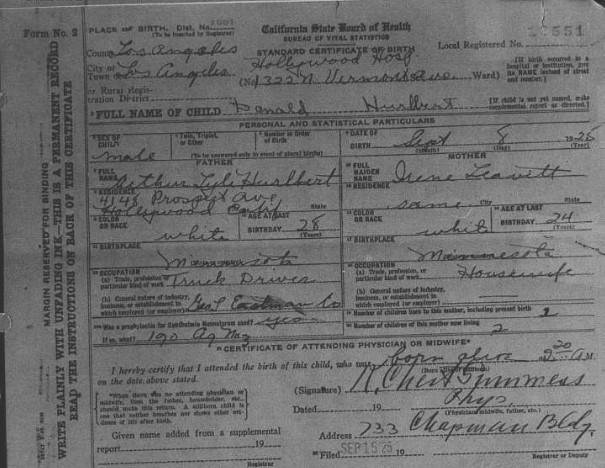 Form No. 2
PLACE OF BIRTH, Dist. No. 1901
(To be inserted by Registrar)
California State Board of Health
BUREAU OF VITAL STATISTICS
STANDARD CERTIFICATE OF BIRTH
Local Registered No. 551
County Los Angeles
City or Town Los Angeles
Hollywood Hosp
(No. 1322 N. Vermont Ave. Ward)
[If birth occurred in a hospital or institution, give its NAME instead of street and number.]
or Rural Registration District
FULL NAME OF CHILD Donald Hurlbert
[If child is not yet named, make supplemental report as directed.]
PERSONAL AND STATISTICAL PARTICULARS
SEX OF CHILD male
Twin, Triplet, or Other
Number in Order of Birth
(To be answered only in event of plural births)
DATE OF BIRTH Sept 8 1925
(Month) (Day) (Year)
FATHER
MOTHER
FULL NAME Arthur Lyle Hurlbert
FULL MAIDEN NAME Irene Leavett
RESIDENCE 4148 Prospect Ave
Hollywood Calif State
RESIDENCE same City State
COLOR OR RACE white
AGE AT LAST BIRTHDAY 28 (Years)
COLOR OR RACE white
AGE AT LAST BIRTHDAY 24 (Years)
BIRTHPLACE Minnesota
BIRTHPLACE Minnesota
OCCUPATION
(a) Trade, profession or particular kind of work Truck Driver
OCCUPATION
(a) Trade, profession or particular kind of work Housewife
(b) General nature of industry, business, or establishment in which employed (or employer) Geo L Eastman Co
(b) General nature of industry, business, or establishment in which employed (or employer)
Was a prophylactic for Ophthalmia Neonatorum used? yes
If so, what? 1% Ag No3
Number of children born to this mother, including present birth 2
Number of children of this mother now living 2
CERTIFICATE OF ATTENDING PHYSICIAN OR MIDWIFE*
I hereby certify that I attended the birth of this child, who was born alive at 2:20 A.M.
on the date above stated.
*When there was no attending physician or midwife, then the father, householder, etc., should make this return. A stillborn child is one that neither breathes nor shows other evidence of life after birth.
(Signature)
Phys.
(Physician, midwife, father, etc.)
Dated 19
Given name added from a supplemental report 19
Address 733 Chapman Bldg
Filed SEP 15 25 19
Registrar
Registrar
MARGIN RESERVED FOR BINDING
WRITE PLAINLY WITH UNFADING INK—THIS IS A PERMANENT RECORD
READ THE INSTRUCTIONS ON BACK OF THIS CERTIFICATE